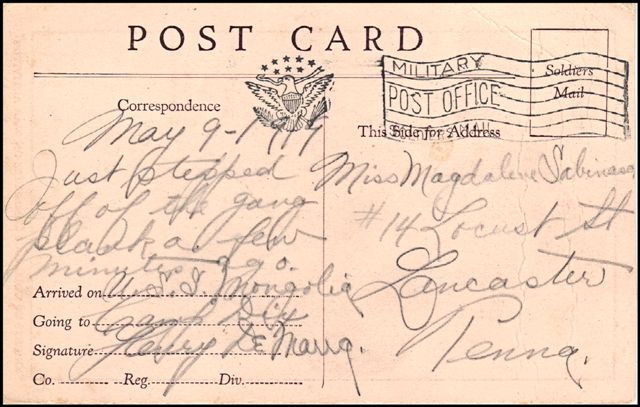 POST CARD
MILITARY
POST OFFICE
SOLDIERS MAIL
Soldiers
Mail
Correspondence
This Side for Address
May 9-1919
Just stepped
off of the gang
plank a few
minutes ago.
Arrived on U.S.S. Mongolia
Going to Camp Dix
Signature Harry De
Co. Reg. Div.
Miss Magdalene
#14 Locust St
Lancaster
Penna.